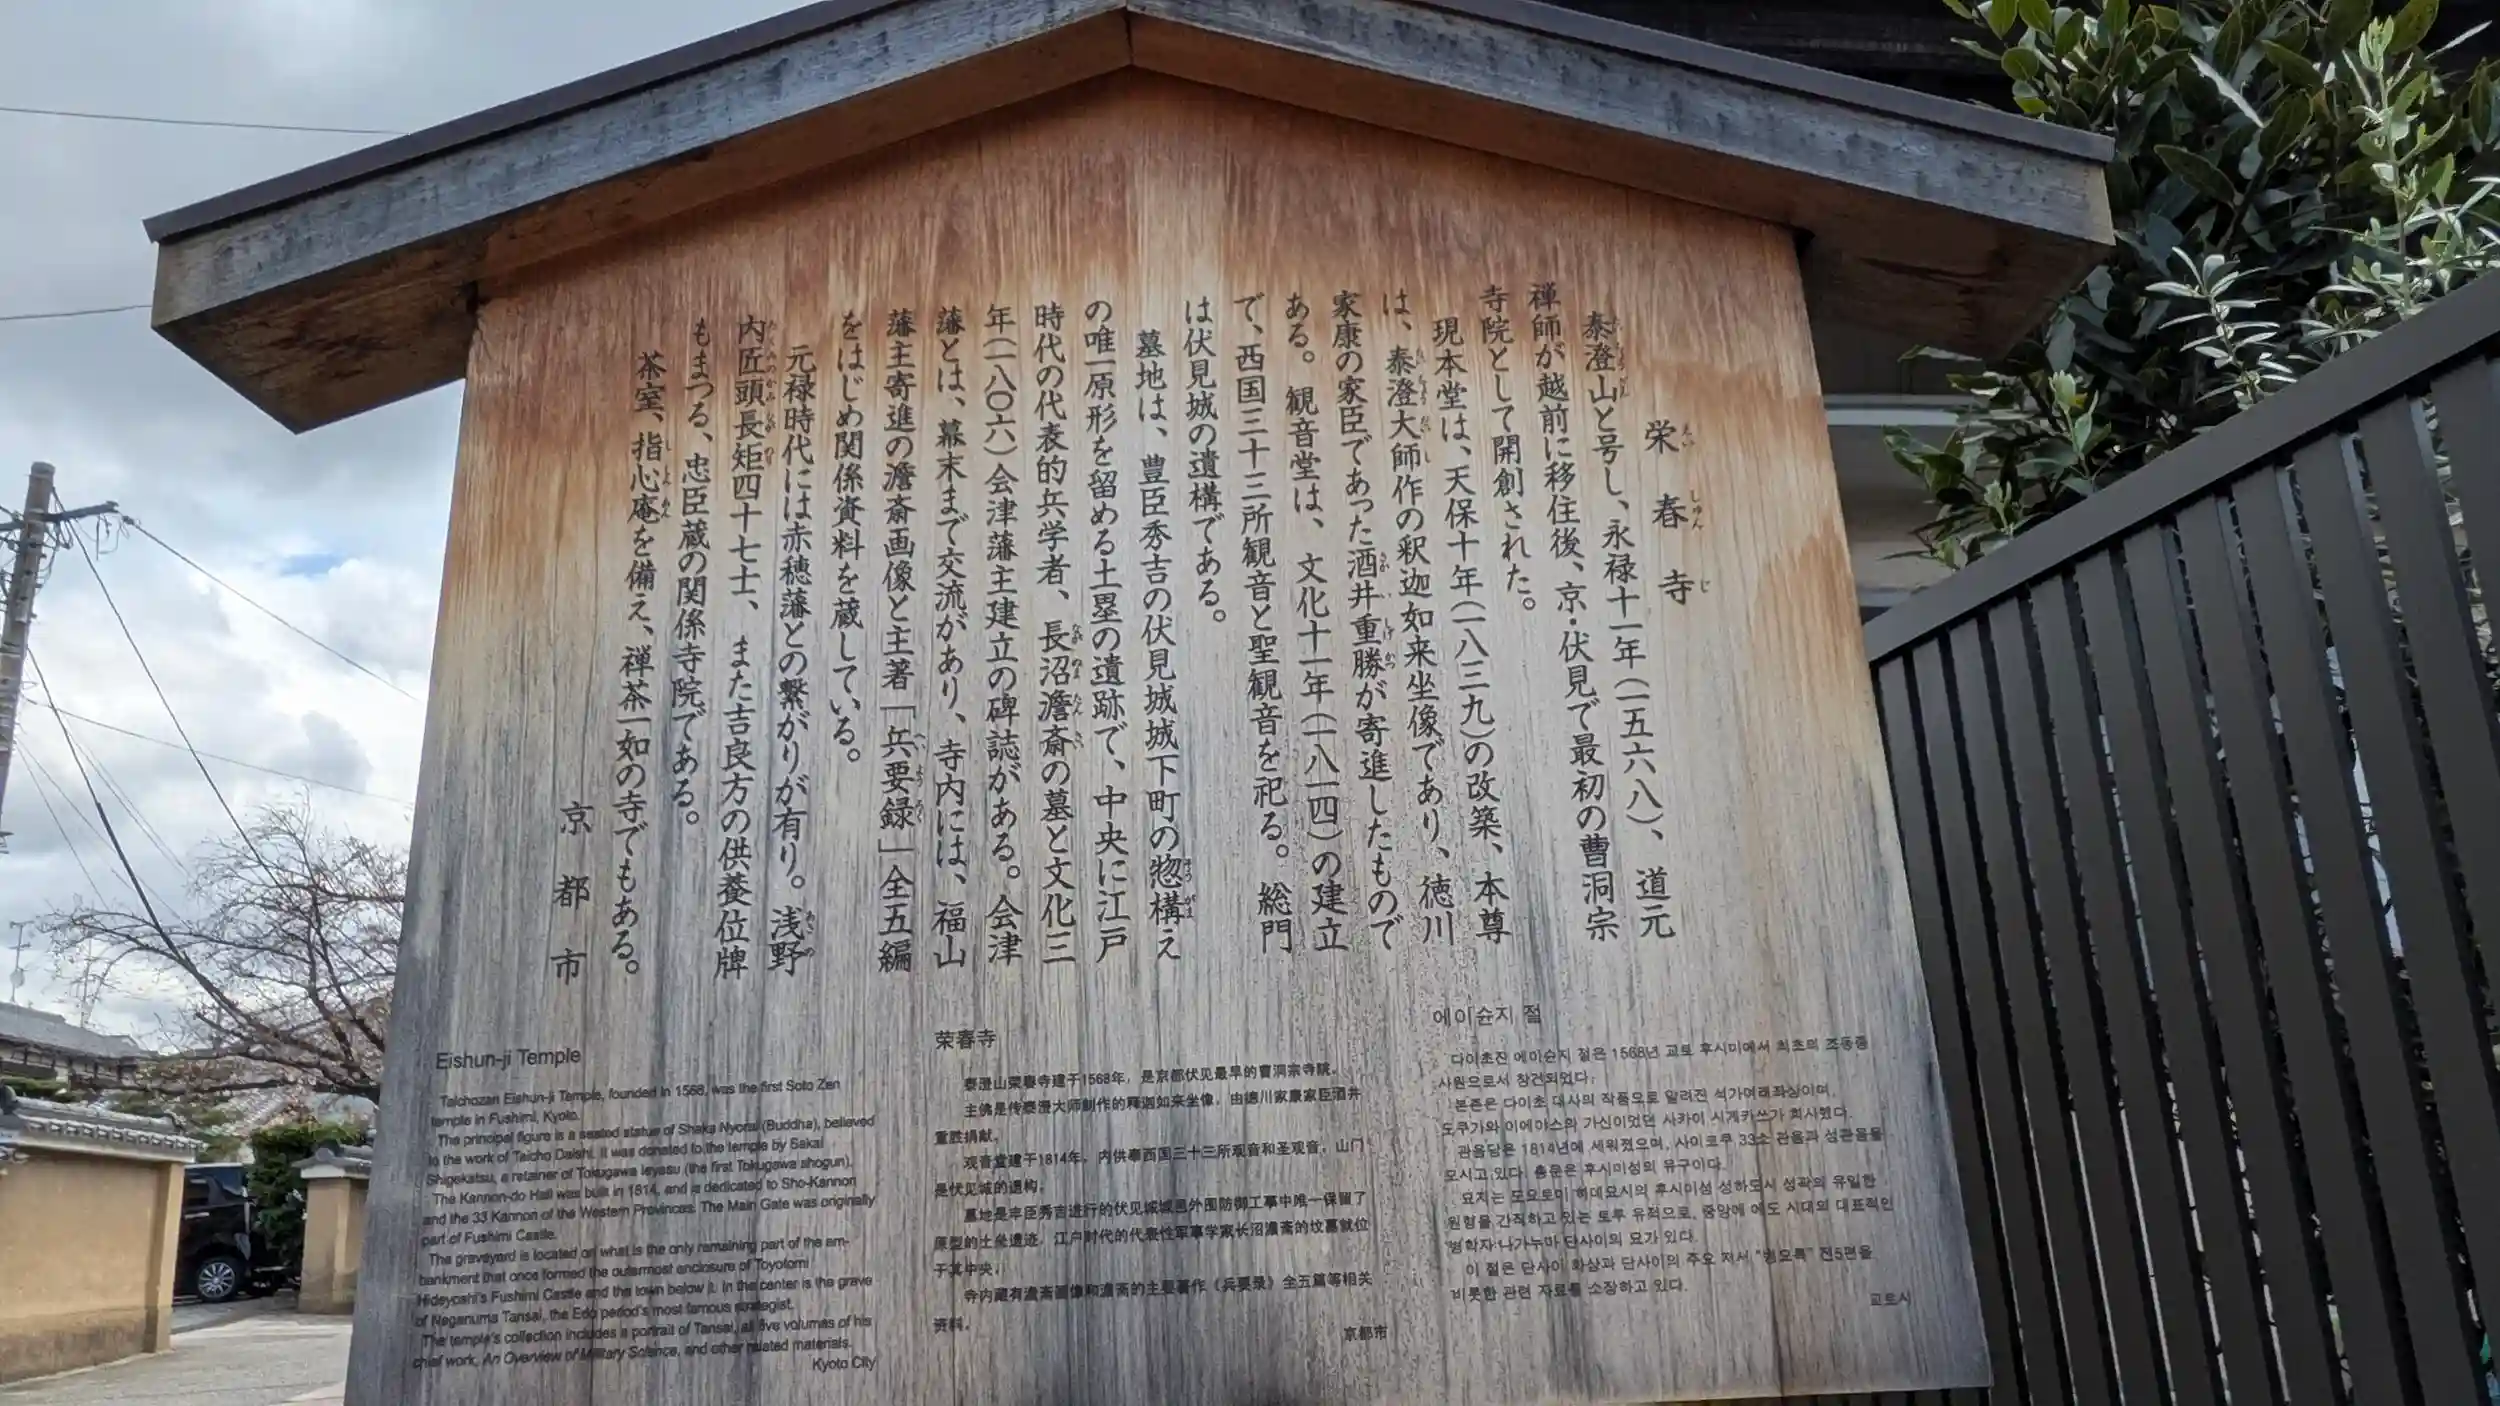 栄春寺
泰澄山と号し、永禄十一年(一五六八)、道元
禅師が越前に移住後、京・伏見で最初の曹洞宗
寺院として開創された。
現本堂は、天保十年(一八三九)の改築、本尊
は、泰澄大師作の釈迦如来坐像であり、徳川
家康の家臣であった酒井重勝が寄進したもので
ある。観音堂は、文化十一年(一八一四)の建立
で、西国三十三所観音と聖観音を祀る。総門
は伏見城の遺構である。
墓地は、豊臣秀吉の伏見城城下町の惣構え
の唯一原形を留める土塁の遺跡で、中央に江戸
時代の代表的兵学者、長沼澹斎の墓と文化三
年(一八〇六)会津藩主建立の碑誌がある。会津
藩とは、幕末まで交流があり、寺内には、福山
藩主寄進の澹斎画像と主著「兵要録」全五編
をはじめ関係資料を蔵している。
元禄時代には赤穂藩との繋がりが有り。浅野
内匠頭長矩四十七士、また吉良方の供養位牌
もまつる、忠臣蔵の関係寺院である。
茶室、指心庵を備え、禅茶一如の寺でもある。
京都市
Eishun-ji Temple
Taichozan Eishun-ji Temple, founded in 1568, was the first Soto Zen
temple in Fushimi, Kyoto.
The principal figure is a seated statue of Shaka Nyorai (Buddha), believed
to be the work of Taicho Daishi. It was donated to the temple by Sakai
Shigekatsu, a retainer of Tokugawa Ieyasu (the first Tokugawa shogun).
The Kannon-do Hall was built in 1814, and is dedicated to Sho-Kannon
and the 33 Kannon of the Western Provinces. The Main Gate was originally
part of Fushimi Castle.
The graveyard is located on what is the only remaining part of the em-
bankment that once formed the outermost enclosure of Toyotomi
Hideyoshi's Fushimi Castle and the town below it. In the center is the grave
of Naganuma Tansai, the Edo period's most famous strategist.
The temple's collection includes a portrait of Tansai, all five volumes of his
chief work, An Overview of Military Science, and other related materials.
Kyoto City
荣春寺
泰澄山荣春寺建于1568年，是京都伏见最早的曹洞宗寺院。
主佛是传泰澄大师制作的释迦如来坐像，由德川家康家臣酒井
重胜捐献。
观音堂建于1814年，内供奉西国三十三所观音和圣观音，山门
是伏见城的遗构。
墓地是丰臣秀吉进行的伏见城城邑外围防御工事中唯一保留了
原型的土垒遗迹，江户时代的代表性军事学家长沼澹斋的坟墓就位
于其中央。
寺内藏有澹斋画像和澹斋的主要著作《兵要录》全五篇等相关
资料。
京都市
에이슌지 절
다이초잔 에이슌지 절은 1568년 교토 후시미에서 최초의 조동종
사원으로서 창건되었다.
본존은 다이초 대사의 작품으로 알려진 석가여래좌상이며,
도쿠가와 이에야스의 가신이었던 사카이 시게카쓰가 희사했다.
관음당은 1814년에 세워졌으며, 사이코쿠 33소 관음과 성관음을
모시고 있다. 총문은 후시미성의 유구이다.
묘지는 도요토미 히데요시의 후시미성 성하도시 성곽의 유일한
원형을 간직하고 있는 토루 유적으로, 중앙에 에도 시대의 대표적인
병학자 나가누마 단사이의 묘가 있다.
이 절은 단사이 화상과 단사이의 주요 저서 "병요록" 전5편을
비롯한 관련 자료를 소장하고 있다.
교토시